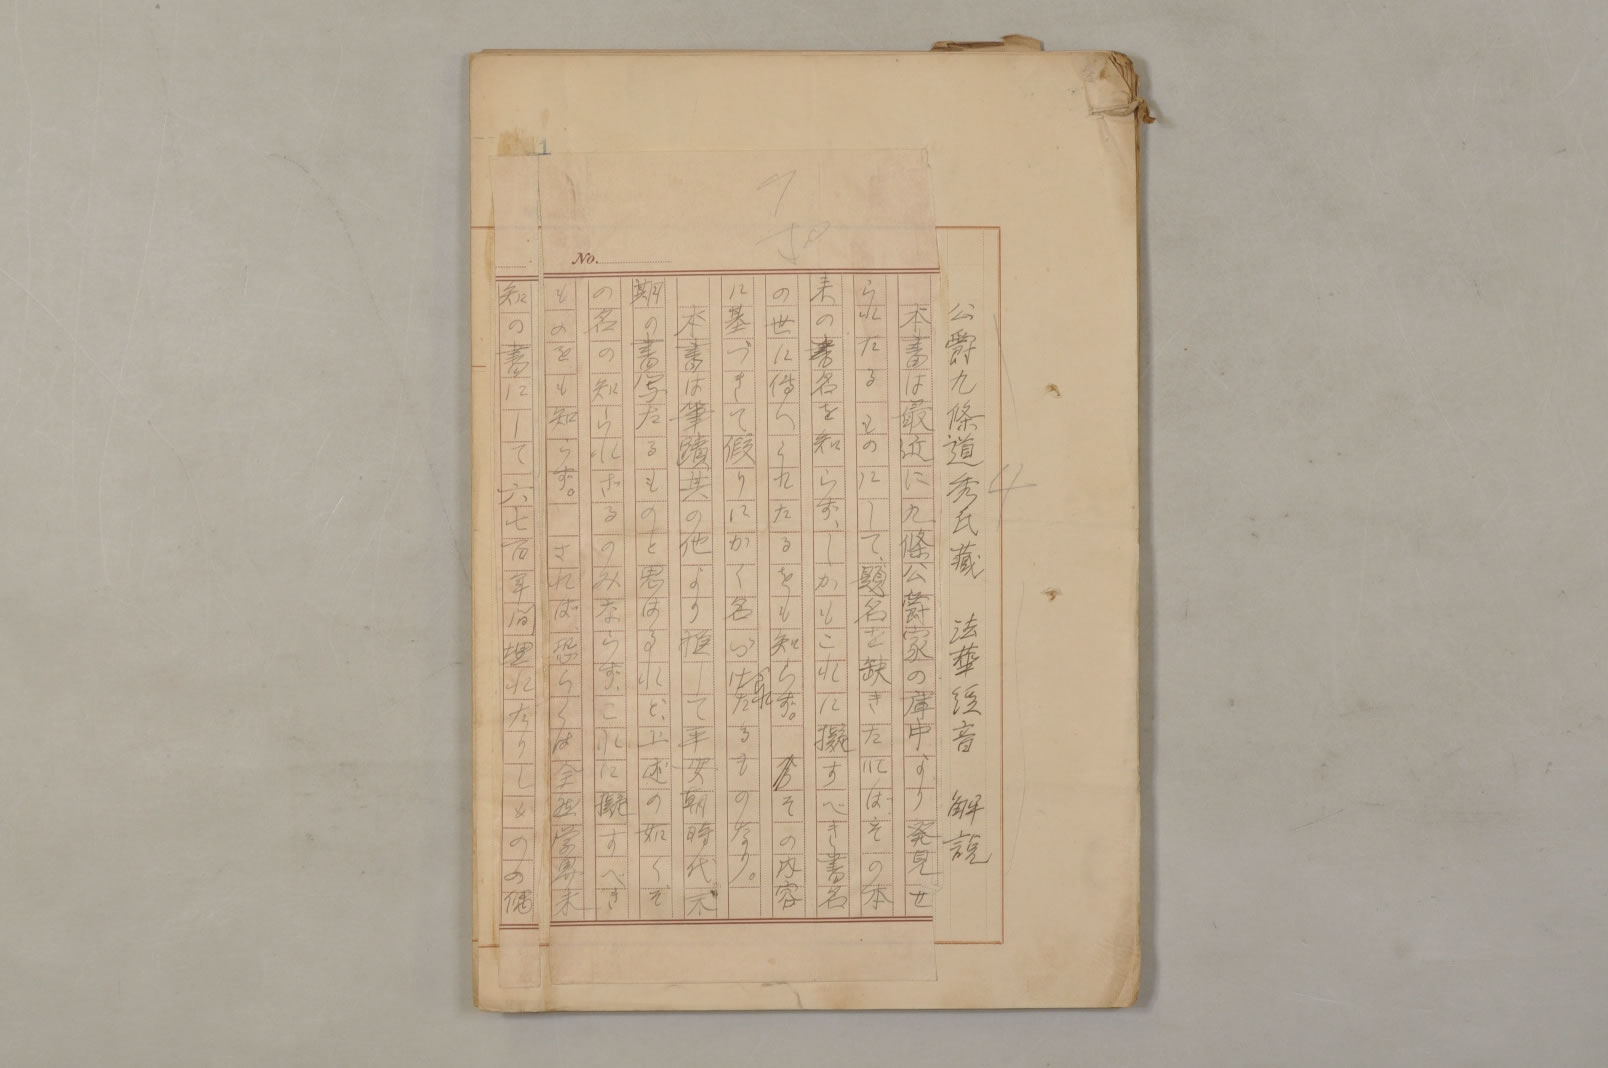 公爵九條道秀氏藏 法華経音 解説
本書は最近に九條公爵家の庫中より発見せ
られたるものにして、題名を缺きたればその本
来の書名を知らず、しかもこれに擬すべき書名
の世に傳へられたるをも知らず。その内容
に基づきて假りにかく名づけられたるものなり。
本書は筆蹟其の他より推して平安朝時代末
期の書写なるものと思はるれど、上述の如くそ
の名の知られざるのみならず、これに擬すべき
ものをも知らず。されば、恐らくは全然学界未
知の書にして六七百年間埋れたりしものの偶
No.
1